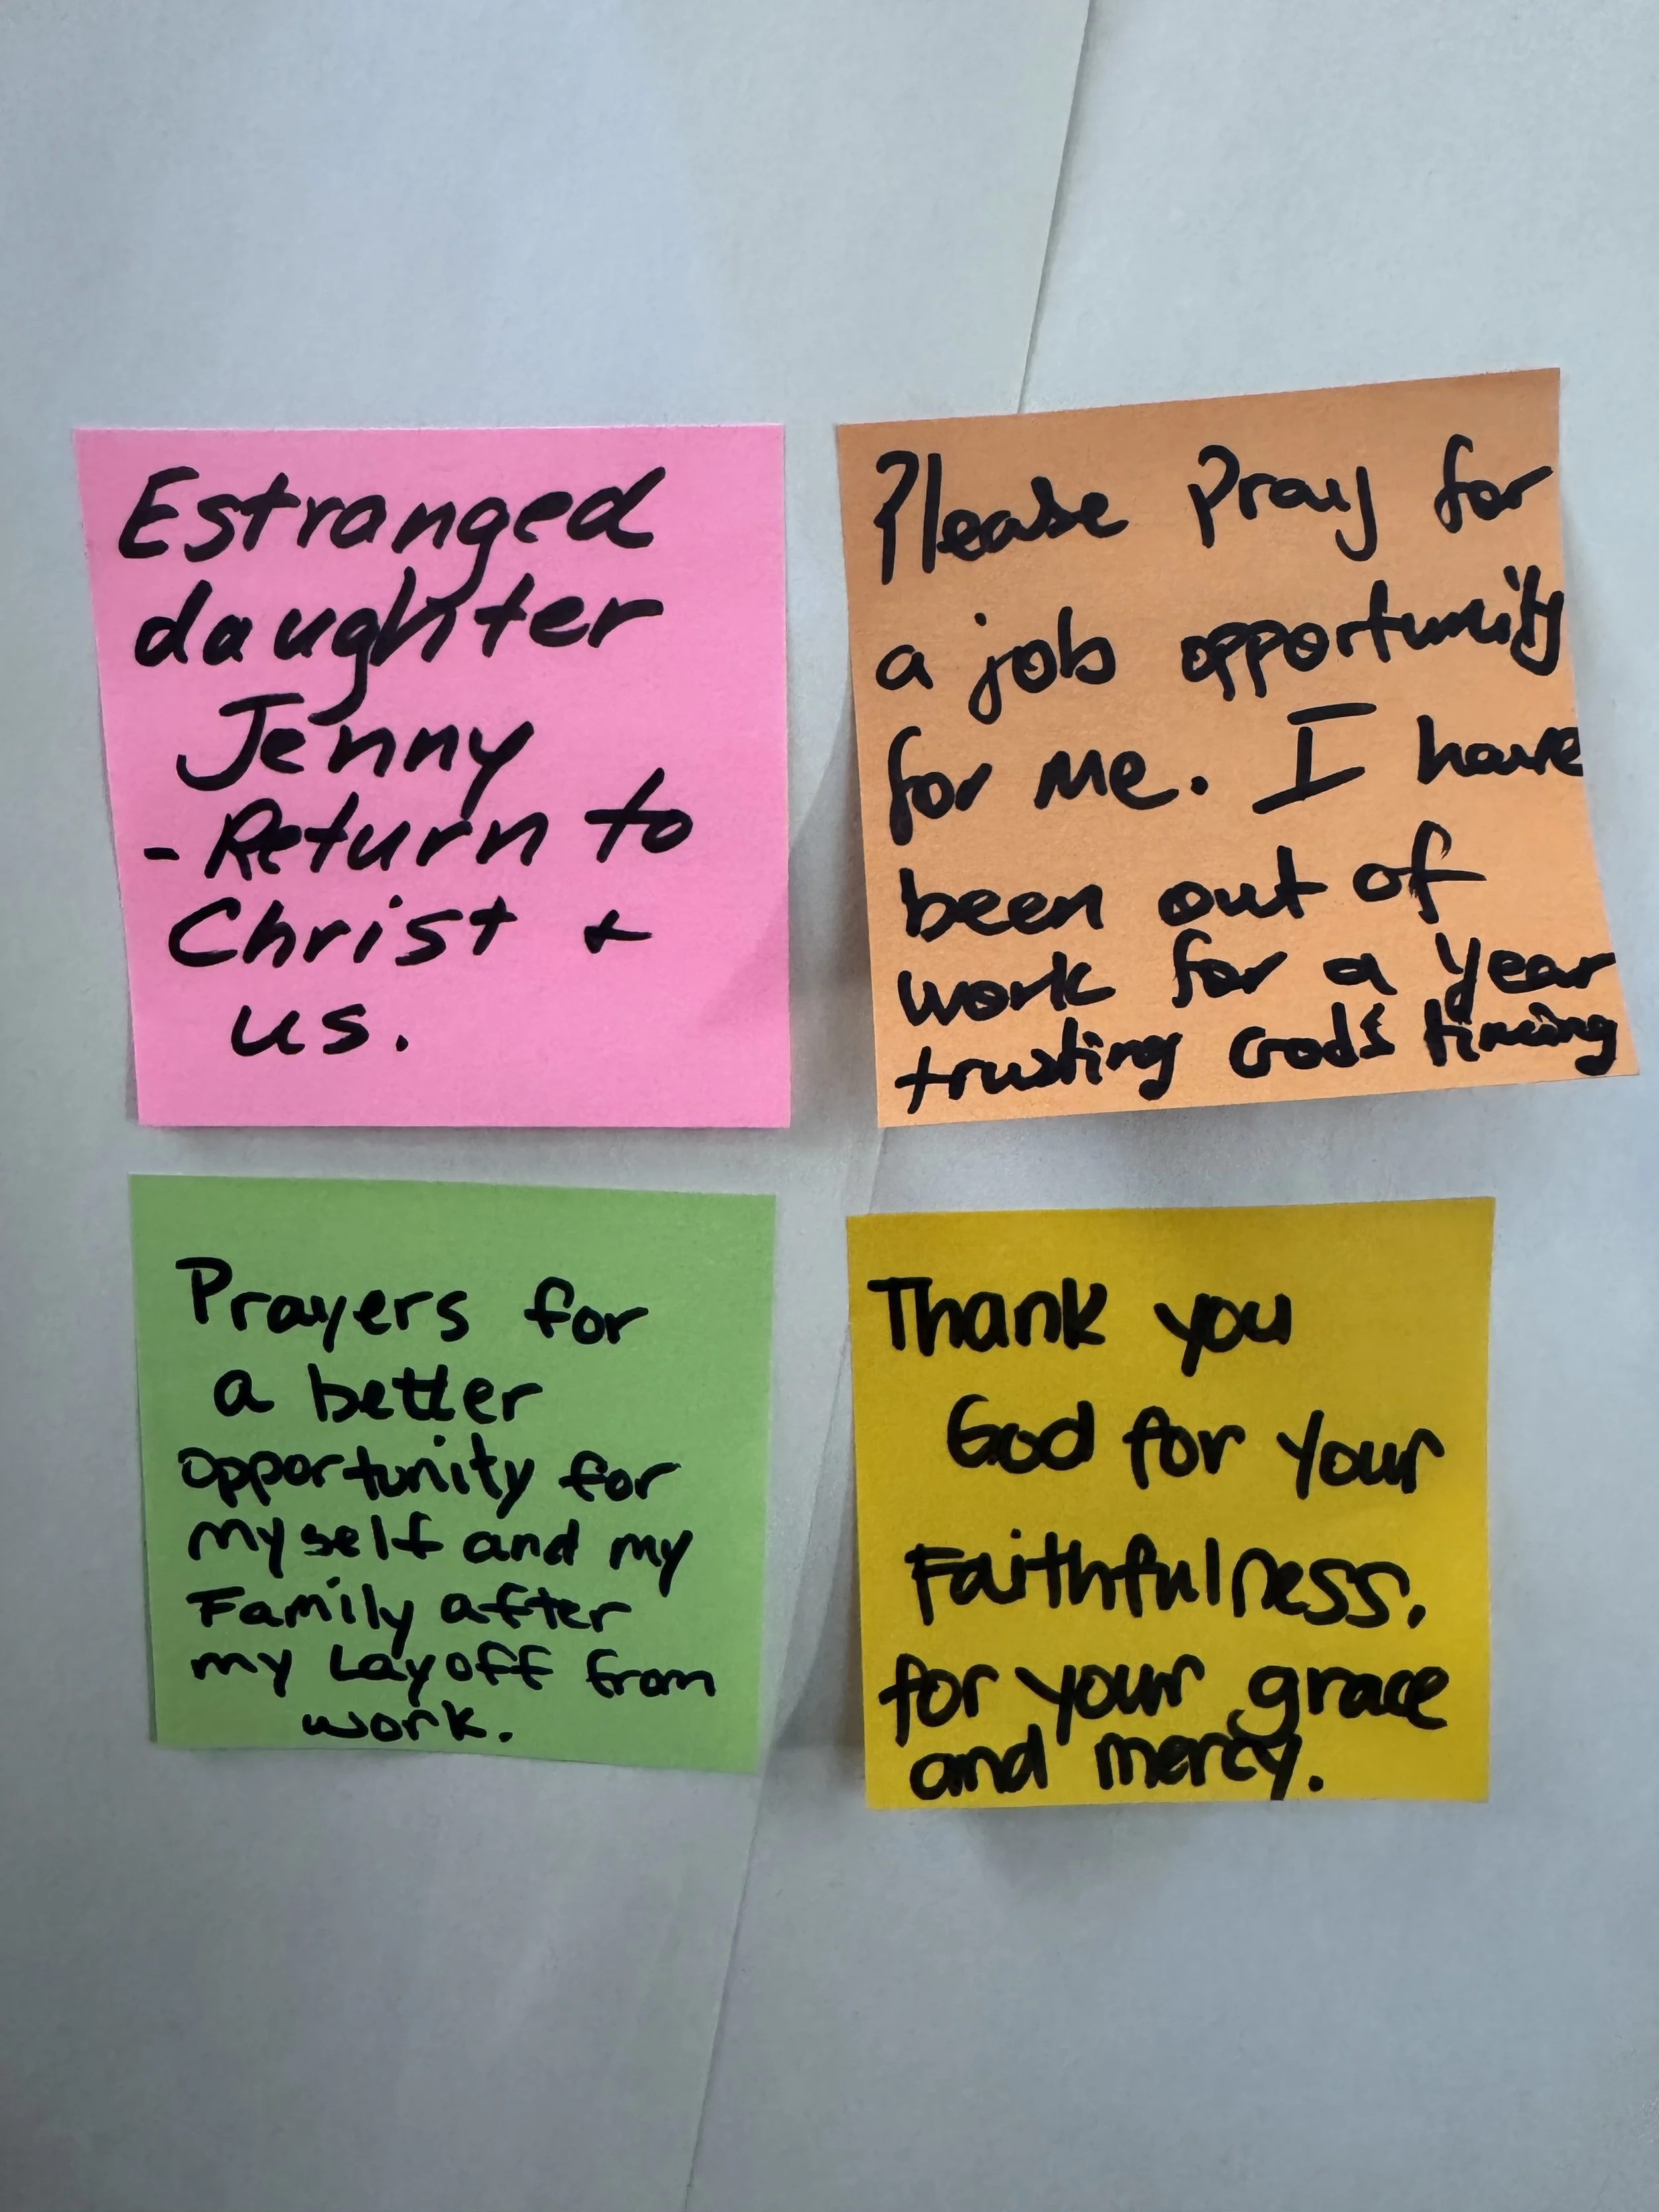 Estranged
daughter
Jenny
- Return to
Christ +
us.
Please Pray for
a job opportunity
for me. I have
been out of
work for a year
trusting God's timing
Prayers for
a better
opportunity for
myself and my
Family after
my Layoff from
work.
Thank you
God for your
Faithfulness.
for your grace
and mercy.